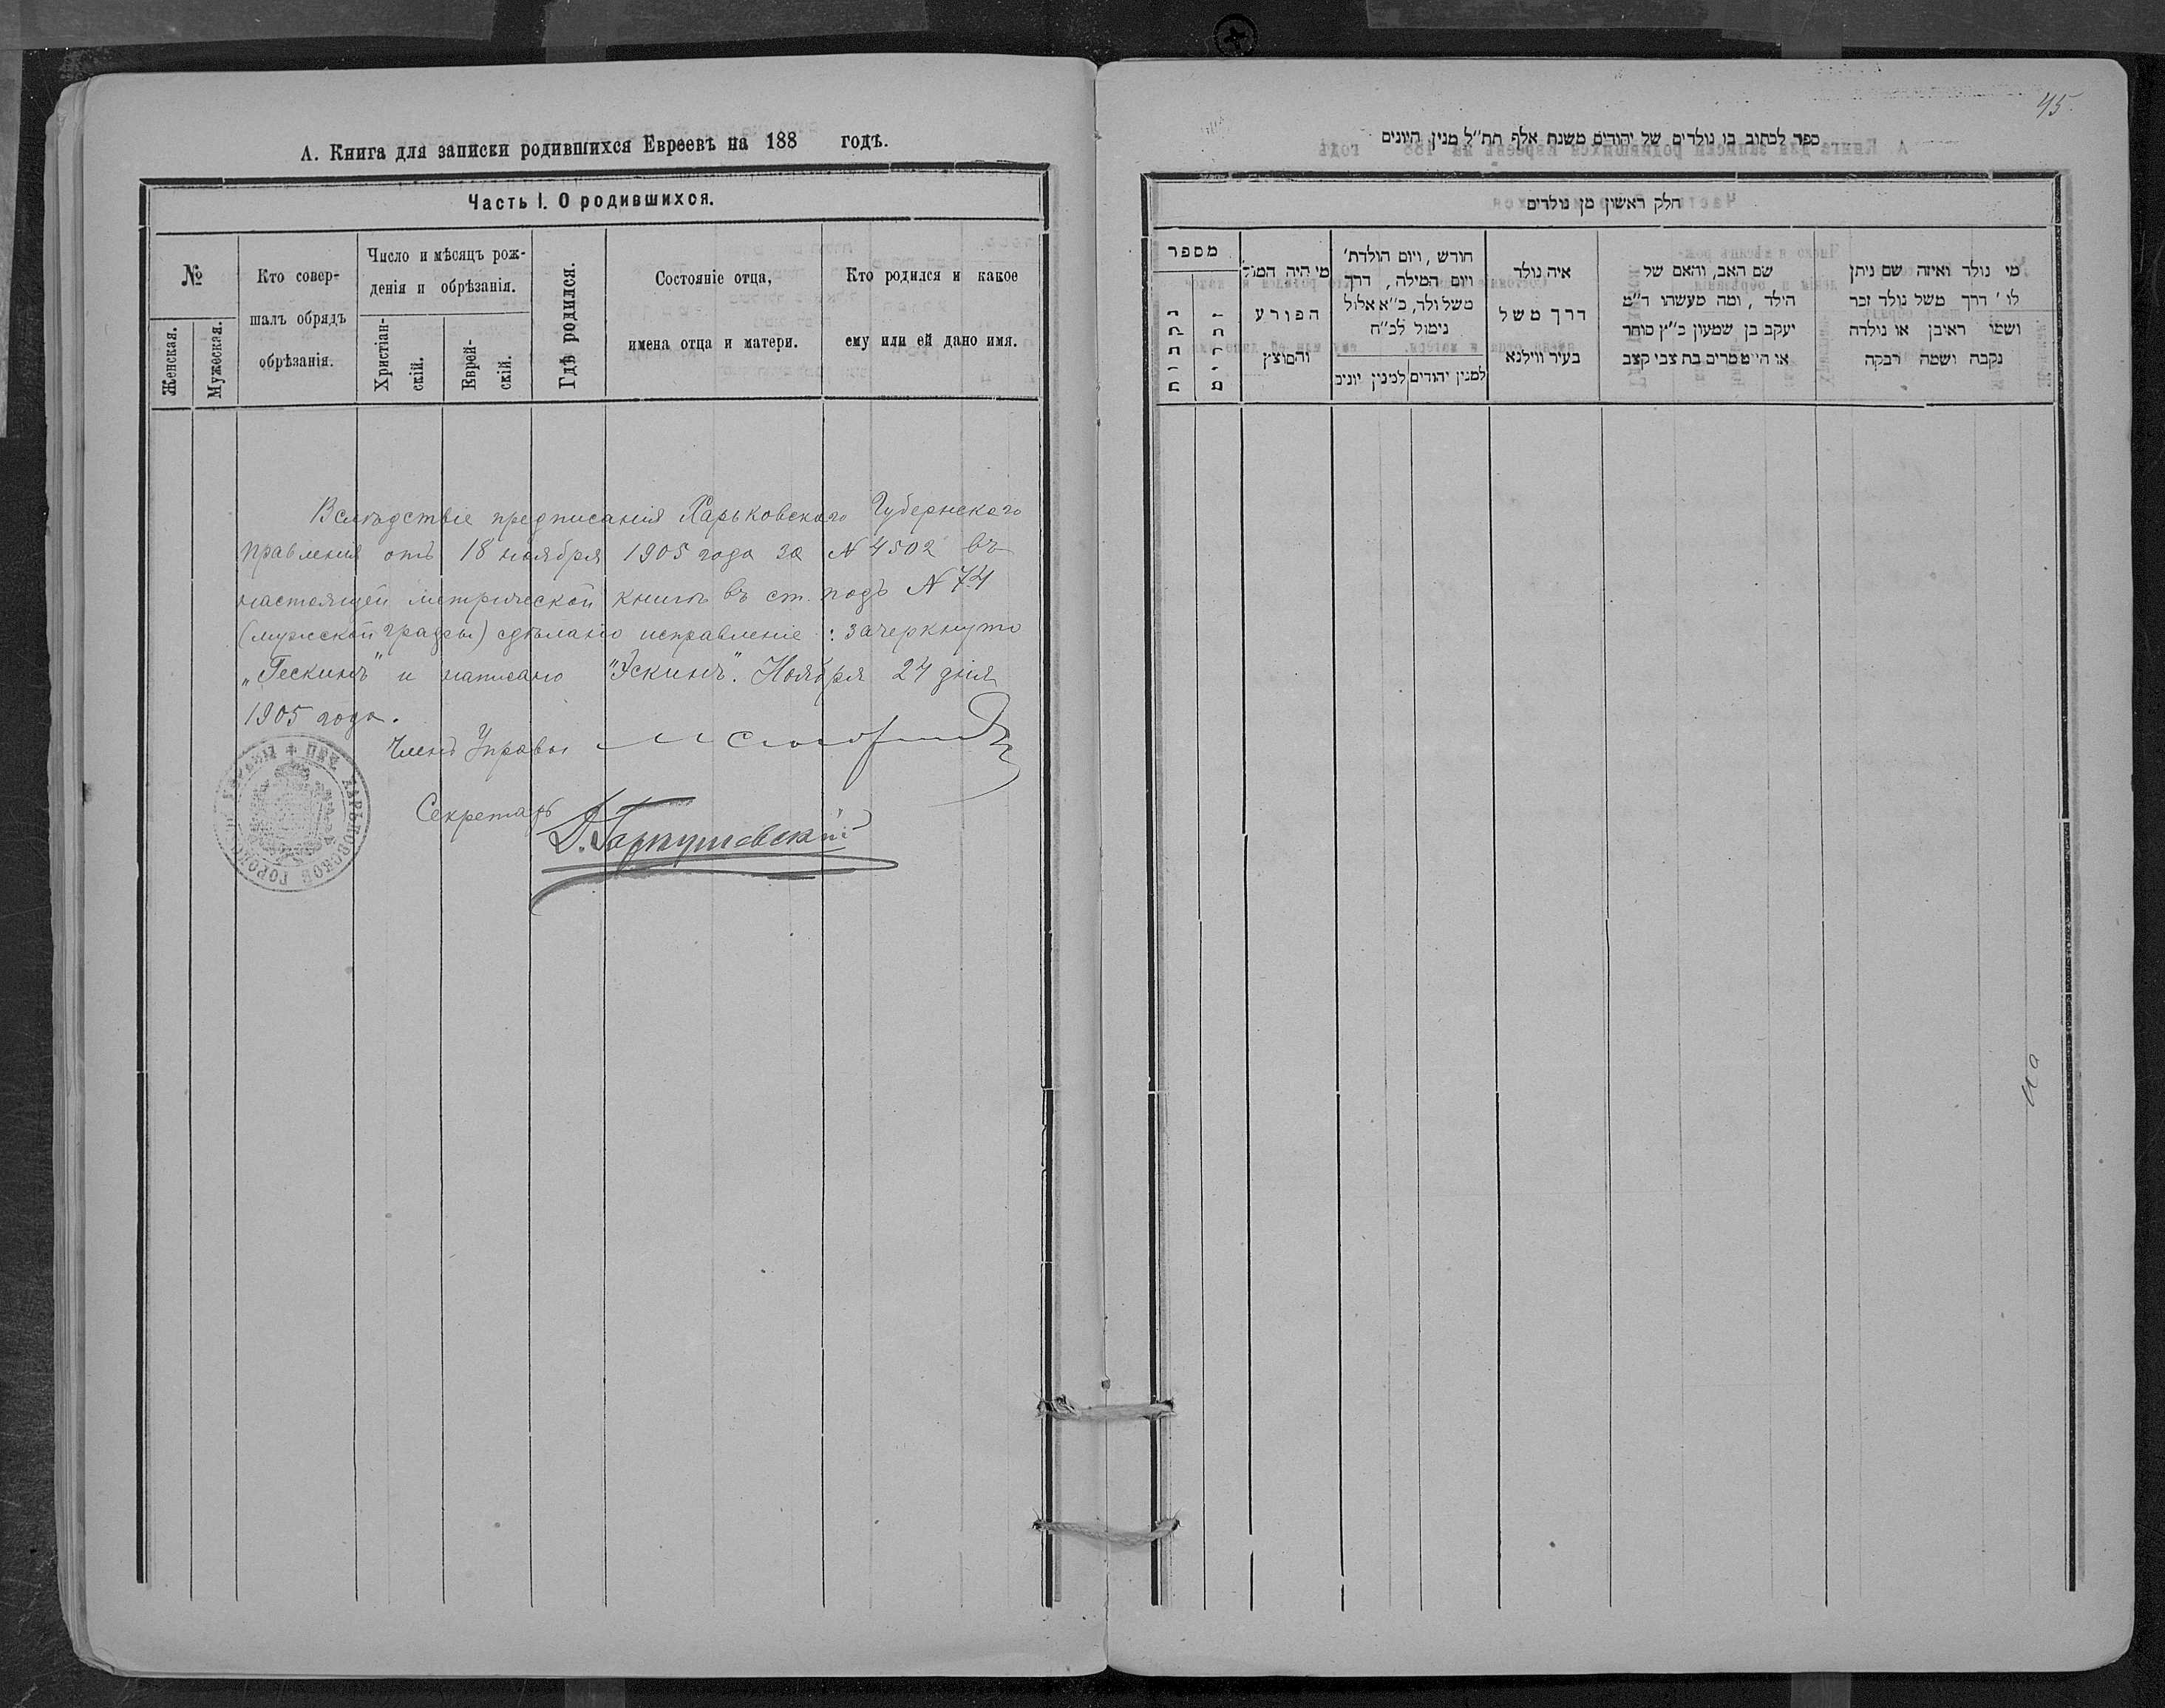 А. Книга для записки родившихся Евреевъ на 188 годъ.
Часть I. О родившихся.
№
Женская.
Мужеская.
Кто совер-
шалъ обрядъ
обрѣзанія.
Число и мѣсяцъ рож-
денія и обрѣзанія.
Христіан-
скій.
Еврей-
скій.
Гдѣ родился.
Состояніе отца,
имена отца и матери.
Кто родился и какое
ему или ей дано имя.
Вслѣдствіе предписанія Харьковскаго Губернскаго
Правленія отъ 18 ноября 1905 года за № 4502 въ
настоящей метрической книгѣ въ ст. подъ № 74
(мужской графы) сдѣлано исправленіе: зачеркнуто
„Гескинъ" и написано "Эскинъ". Ноября 24 дня
1905 года.
Членъ Управы
Секретарь
45.
ספר לכתוב בו נולדים של יהודים משנת אלף תת״ל מנין היונים
חלק ראשון מן נולדים
מספר
נקבות
זכרים
מי היה המול
הפורע
והמוצץ
חודש, ויום הולדת׳
ויום המילה, דרך
משל ולד, כ״א אלול
נימול לכ״ח
למנין יהודים
למנין יונים
איה נולד
דרך משל
בעיר ווילנא
שם האב, והאם של
הילד, ומה מעשהו ד״מ
יעקב בן שמעון כ״ץ סוחר
או היי׳ טמרים בת צבי קצב
מי נולד ואיזה שם ניתן
לו׳ דרך משל נולד זכר
ושמו ראיבן או נולדה
נקבה ושמה רבקה